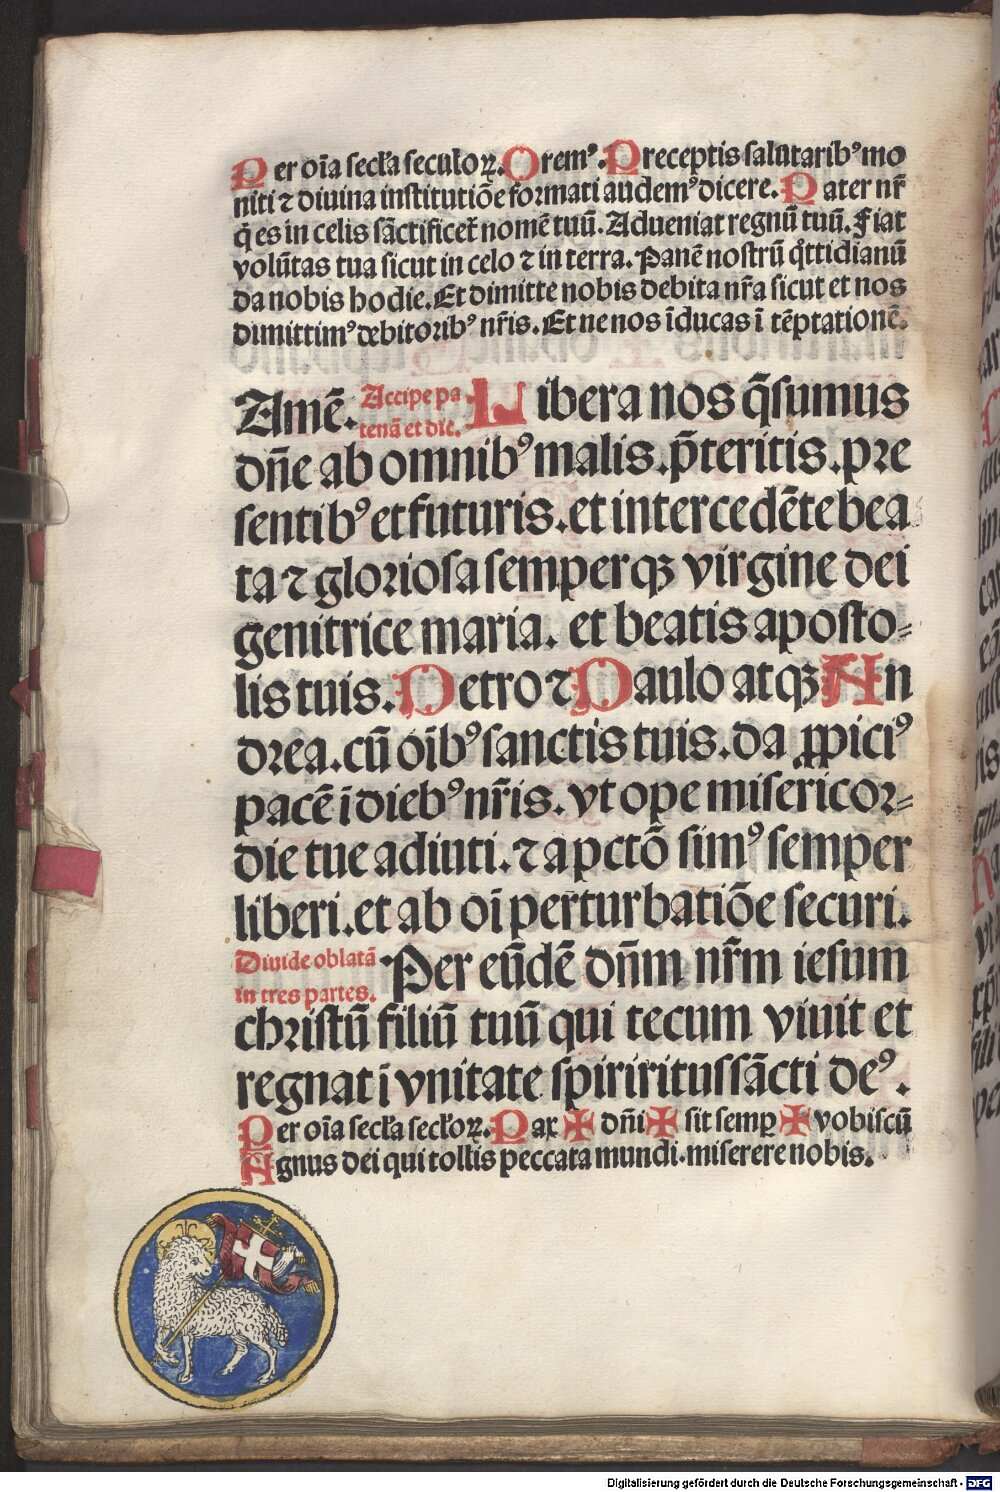 Per oīa secl'a seculoꝝ. Oremꝰ. Preceptis salutaribꝰ mo
niti ⁊ diuina institutiōe formati audemꝰ dicere. Pater nr̄
q̄ es in celis sāctificet̄ nomē tuū. Adueniat regnū tuū. Fiat
volūtas tua sicut in celo ⁊ in terra. Panē nostrū q̊ttidianū
da nobis hodie. Et dimitte nobis debita nr̄a sicut et nos
dimittimꝰ debitoribꝰ nr̄is. Et ne nos īducas ī tēptationē.
Amē. Accipe pa
tenā et dic. Libera nos q̄sumus
dn̄e ab omnibꝰ malis. p̄teritis. pre
sentibꝰ et futuris. et intercedēte bea
ta ⁊ gloriosa semperqꝫ virgine dei
genitrice maria. et beatis aposto⸗
lis tuis. Petro ⁊ Paulo atqꝫ An
drea. cū oībꝰ sanctis tuis. da ꝓpiciꝰ
pacē ī diebꝰ nr̄is. vt ope misericor⸗
die tue adiuti. ⁊ a pctō simꝰ semper
liberi. et ab oī perturbatiōe securi.
Diuide oblatā
in tres partes. Per eūdē dn̄m nr̄m iesum
christū filiū tuū qui tecum viuit et
regnat ī vnitate spiriritus sācti deꝰ.
Per oīa secl'a secl'oꝝ. Pax ✠ dn̄i ✠ sit semꝑ ✠ vobiscū
Agnus dei qui tollis peccata mundi. miserere nobis.
Digitalisierung gefördert durch die Deutsche Forschungsgemeinschaft - DFG